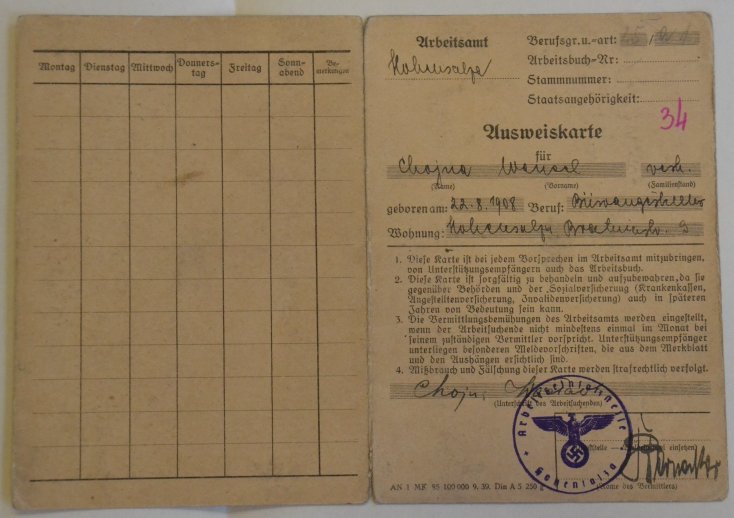 Montag Dienstag Mittwoch Donners-tag Freitag Sonn-abend Be-merkungen
Arbeitsamt
Hohensalza
Berufsgr. u. -art:
Arbeitsbuch-Nr:
Stammnummer:
Staatsangehörigkeit:
34
Ausweiskarte
für
Chojna verh.
(Name) (Vorname) (Familienstand)
geboren am: 22.8.1908 Beruf: Büroangestellter
Wohnung: Hohensalza
1. Diese Karte ist bei jedem Vorsprechen im Arbeitsamt mitzubringen,
von Unterstützungsempfängern auch das Arbeitsbuch.
2. Diese Karte ist sorgfältig zu behandeln und aufzubewahren, da sie
gegenüber Behörden und der Sozialversicherung (Krankenkassen,
Angestelltenversicherung, Invalidenversicherung) auch in späteren
Jahren von Bedeutung sein kann.
3. Die Vermittlungsbemühungen des Arbeitsamts werden eingestellt,
wenn der Arbeitsuchende nicht mindestens einmal im Monat bei
seinem zuständigen Vermittler vorspricht. Unterstützungsempfänger
unterliegen besonderen Meldevorschriften, die aus dem Merkblatt
und den Aushängen ersichtlich sind.
4. Mißbrauch und Fälschung dieser Karte werden strafrechtlich verfolgt.
(Unterschrift des Arbeitsuchenden)
einsetzen)
AN 1 MK 95 100 000 9. 39. Din A 5 250 g
(Name des Vermittlers)
Hohensalza